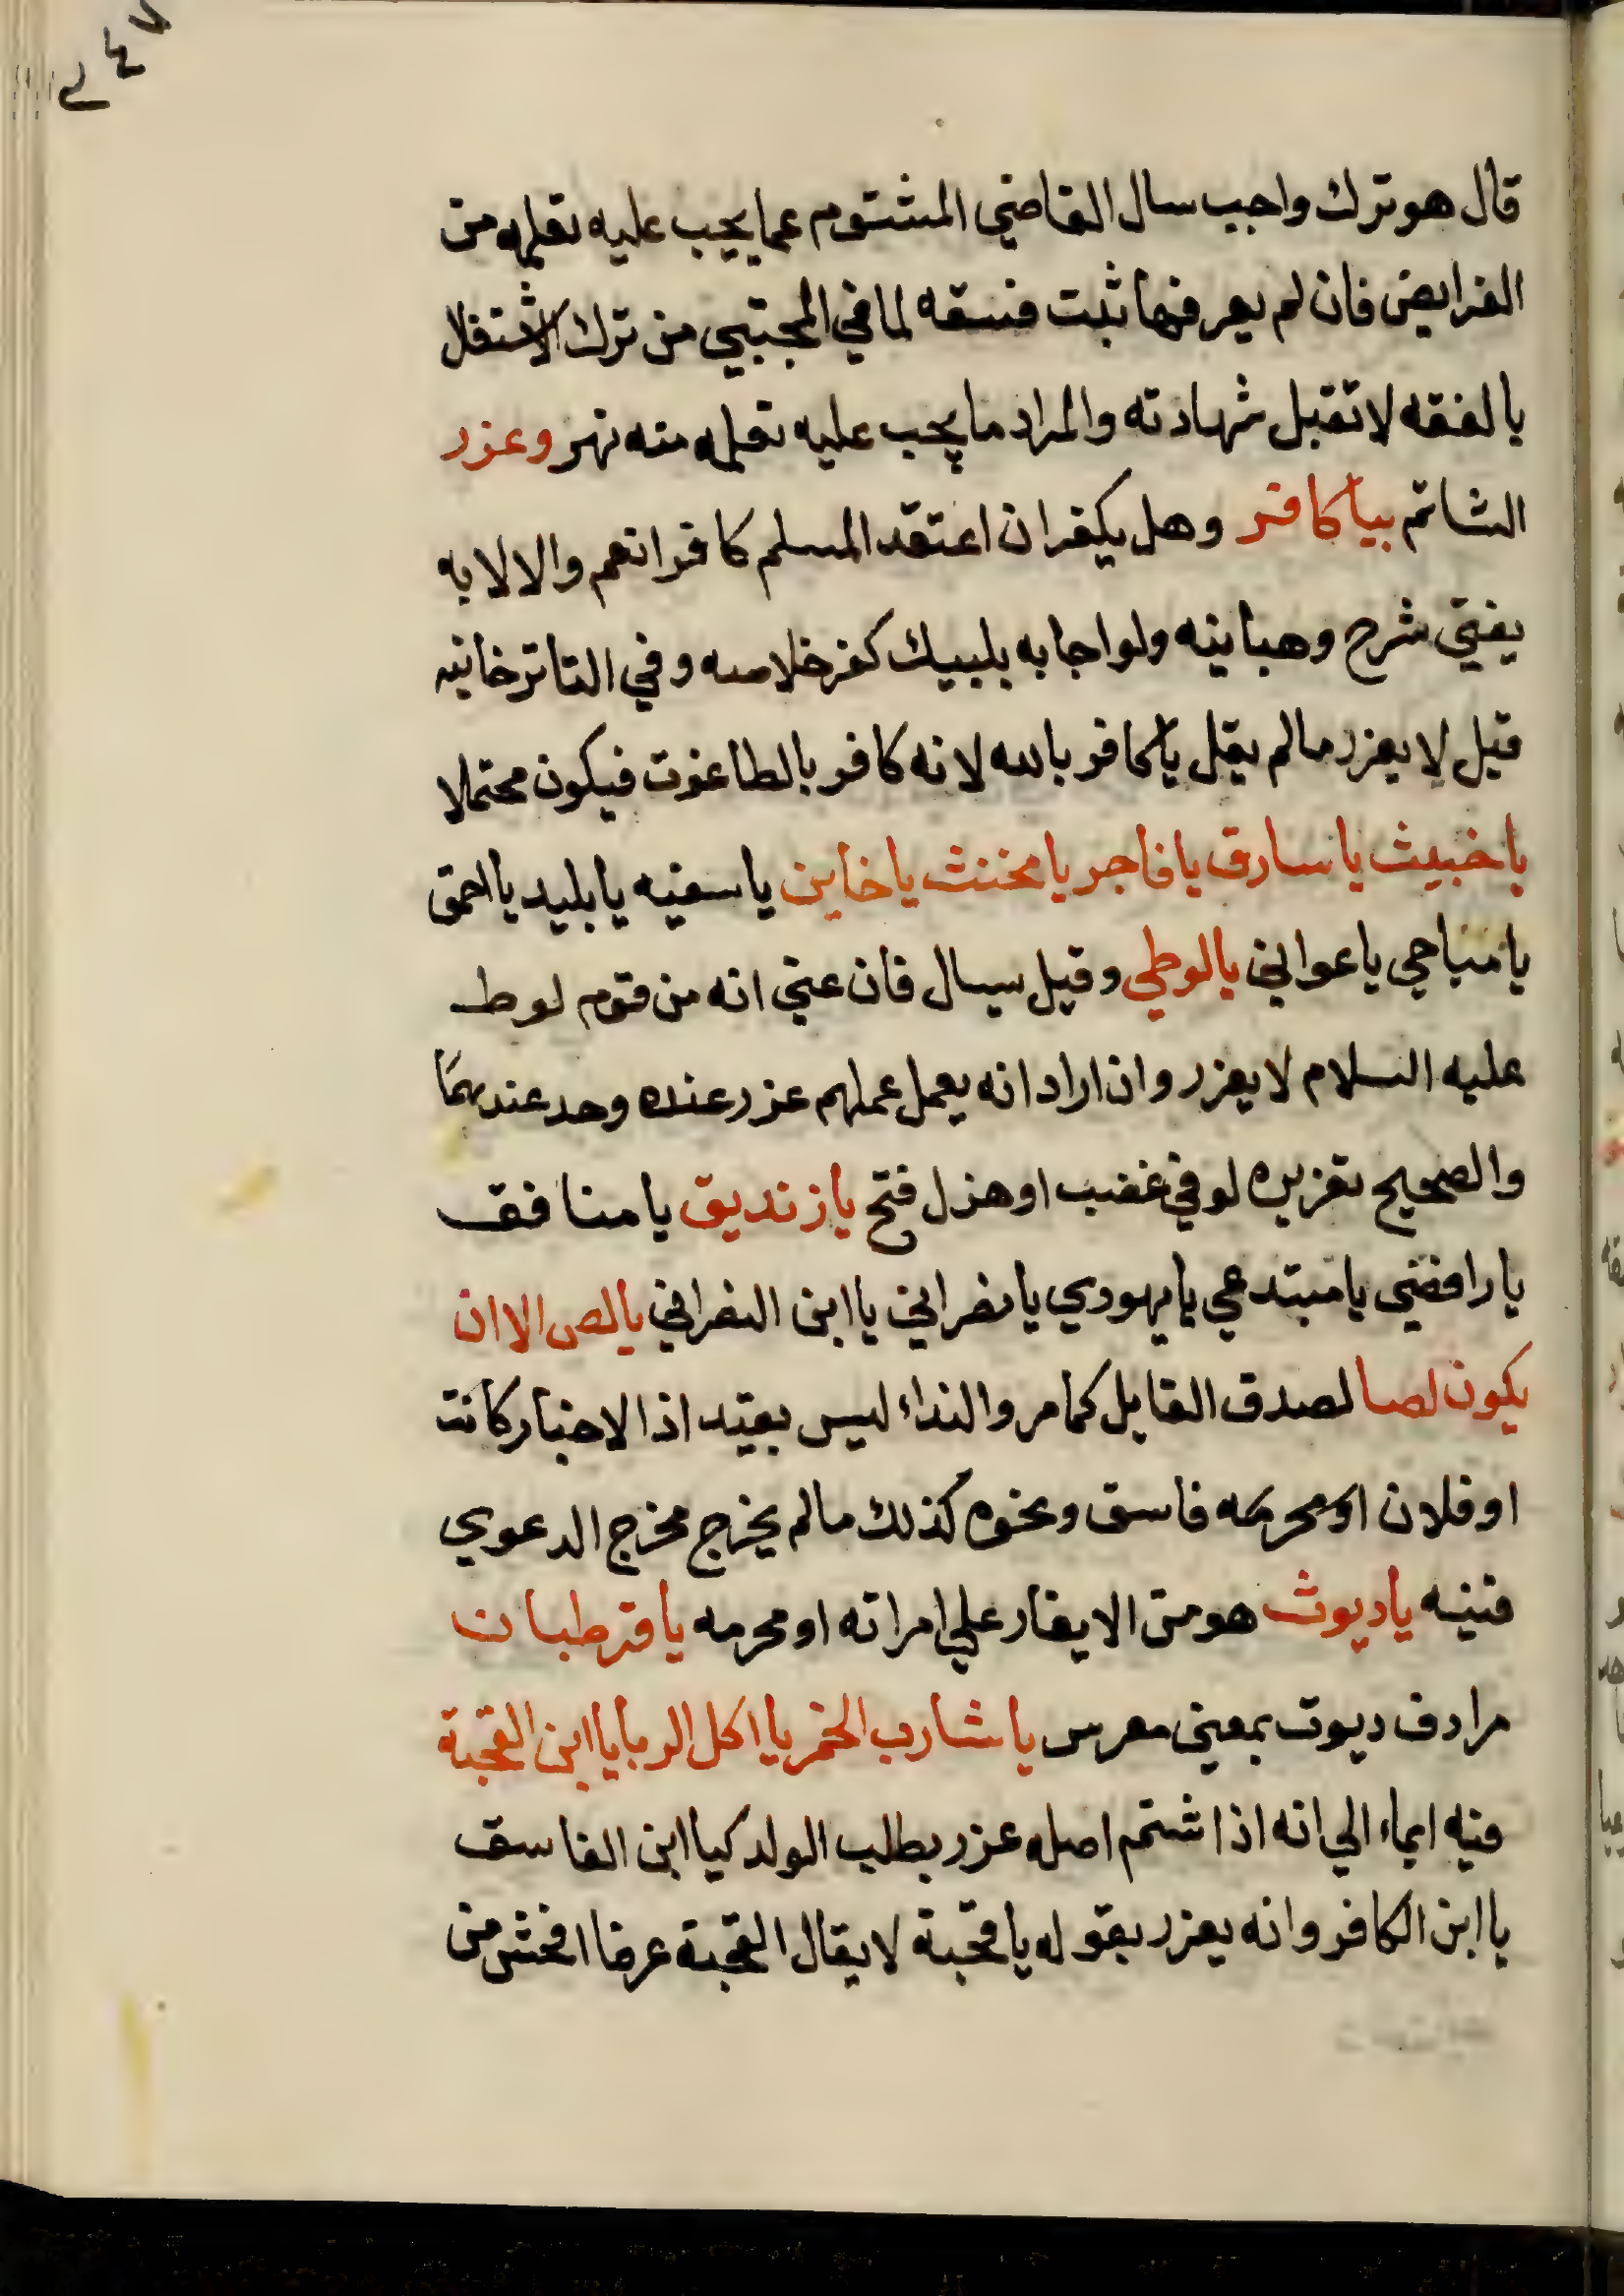 ٢٤٧
قال هو ترك واجب سال القاضي المشتوم عما يجب عليه تعلمه من
الفرايض فان لم يعرفها ثبت فسقه لما في المجتبي من ترك الاشتغال
بالفقه لا تقبل شهادته والمراد ما يجب عليه تعلمه منه نهر وعزر
الشاتم بيا كافر وهل يكفر ان اعتقد المسلم كافرا نعم والا لا به
يفتي شرح وهبانيه ولو اجابه بلبيك كفر خلاصه وفي التاترخانيه
قيل لا يعزر ما لم يقل يا كافر بالله لانه كافر بالطاغوت فيكون محتملا
يا خبيث يا سارق يا فاجر يا مخنث يا خاين يا سفيه يا بليد يا احمق
يا مباحي يا عواني يا لوطي وقيل سيال فان عني انه من قوم لوط
عليه السلام لا يعزر وان اراد انه يعمل عملهم عزر عنده وحد عندهما
والصحيح تعزيره لو في غضب او هزل فتح يا زنديق يا منافق
يا رافضي يا مبتدعي يا يهودي يا نصراني يا ابن النصراني يا لص الا ان
يكون لصا لصدق القايل كما مر والنداء ليس بقيد اذ الاخبار كانت
او فلان او محرمه فاسق ونحوه كذلك ما لم يخرج مخرج الدعوي
قنيه يا ديوث هو من لا يغار علي امراته او محرمه يا قرطبان
مرادف ديوث بمعني معرس يا شارب الخمر يا اكل الربا يا ابن القحبة
فيه ايماء الي انه اذا شتم اصله عزر بطلب الولد كيا ابن الفاسق
يا ابن الكافر وانه يعزر بقوله يا قحبة لا يقال القحبة عرفا افحش من